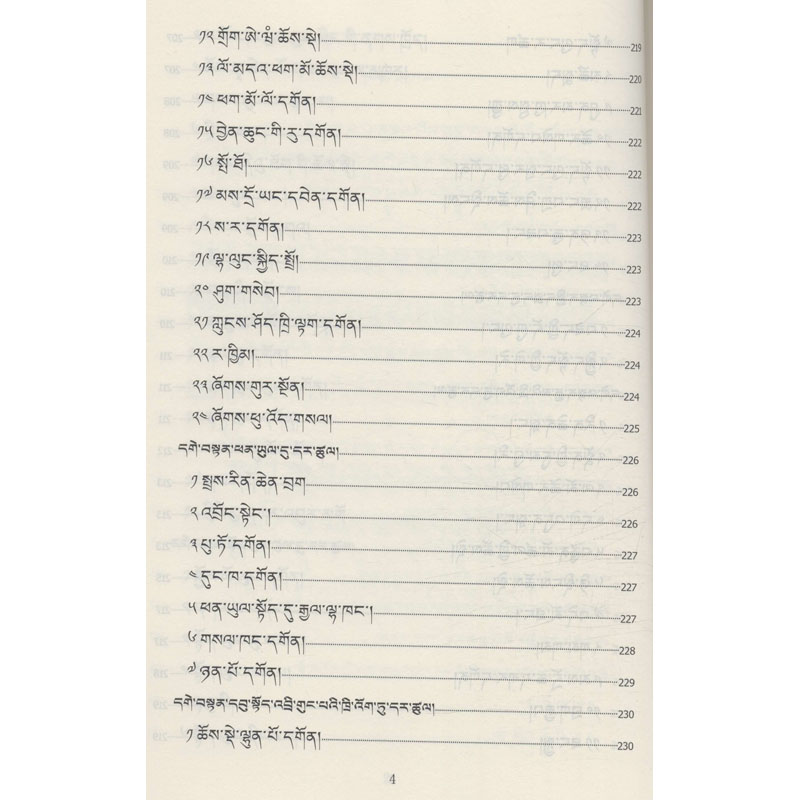 ༡༢ གྲོག་ཨེ་ཝཾ་ཆོས་སྡེ། 219
༡༣ ལོ་མདའ་ཕག་མོ་ཆོས་སྡེ། 220
༡༤ ཕག་མོ་ལོ་དགོན། 221
༡༥ བྱེན་ཆུང་གི་རུ་དགོན། 222
༡༦ སྤོ་ཐོ། 222
༡༧ མས་དྲོ་ཡང་དབེན་དགོན། 222
༡༨ ས་ར་དགོན། 223
༡༩ ལྷ་ལུང་སྐྱིད་སྤྲོ། 223
༢༠ ཤུག་གསེབ། 223
༢༡ ཀླུངས་ཤོད་ཁྲི་ལྟག་དགོན། 224
༢༢ ར་ཁྱིམ། 224
༢༣ ཞོགས་གུར་སྔོན། 224
༢༤ ཞོགས་ཕུ་འོད་གསལ། 225
དགེ་བསྟན་ཕན་ཡུལ་དུ་དར་ཚུལ། 226
༡ སྤྲས་རིན་ཆེན་བྲག 226
༢ འབྲོང་སྟེང་། 226
༣ ཕུ་ཏོ་དགོན། 227
༤ དུང་ཁ་དགོན། 227
༥ ཕན་ཡུལ་སྟོད་དུ་རྒྱལ་ལྷ་ཁང་། 227
༦ གསལ་ཁང་དགོན། 228
༧ ཉན་པོ་དགོན། 229
དགེ་བསྟན་དབུ་སྟོད་འབྲི་གུང་པའི་ཁྲི་འོག་ཏུ་དར་ཚུལ། 230
༡ ཆོས་སྡེ་ལྷུན་པོ་དགོན། 230
4